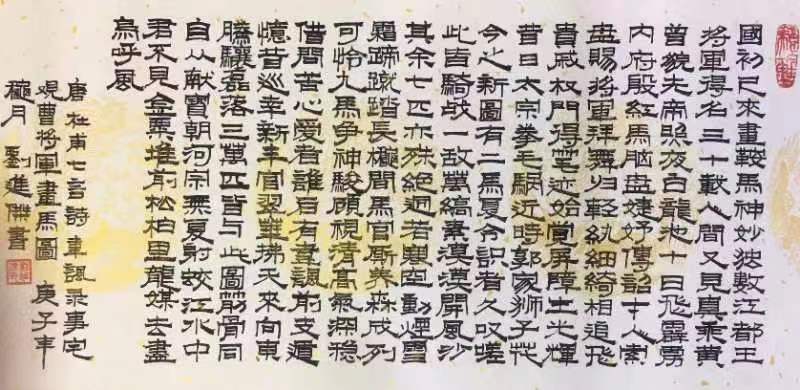 國初已來畫鞍馬神妙独數江都王
將軍得名三十載人間又見真乘黄
曾貌先帝照夜白龍池十日飛霹靂
内府殷紅馬脑盘婕妤傳詔才人索
盘賜將軍拜舞归轻纨细绮相追飛
贵戚权門得笔迹始觉屏障生光輝
昔日太宗拳毛騧近時郭家狮子花
今之新圖有二馬复令识者久叹嗟
此皆騎战一敌萬縞素漠漠開風沙
其余七匹亦殊絕迥若寒空動煙雪
霜蹄蹴踏長楸間馬官厮养森成列
可怜九馬争神駿顾視清高氣深稳
借問苦心爱者誰后有韋諷前支遁
憶昔巡幸新丰宫翠華拂天來向東
騰驤磊落三萬匹皆与此圖筋骨同
自从献寶朝河宗無复射蛟江水中
君不見金粟堆前松柏里龍媒去盡
烏呼風
唐杜甫七言詩韋諷录事宅
观曹將軍畫馬圖 庚子年
龝月 劉進傑書